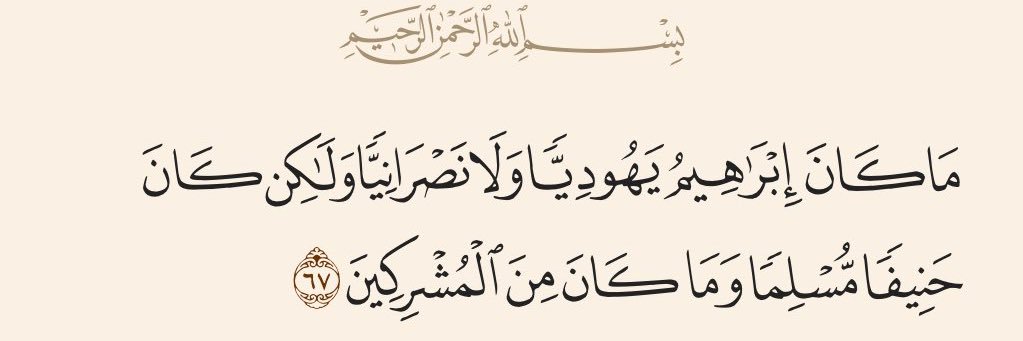 بِسْمِ ٱللَّهِ ٱلرَّحْمَٰنِ ٱلرَّحِيمِ
مَا كَانَ إِبْرَٰهِيمُ يَهُودِيًّا وَلَا نَصْرَانِيًّا وَلَٰكِن كَانَ
حَنِيفًا مُّسْلِمًا وَمَا كَانَ مِنَ ٱلْمُشْرِكِينَ ٦٧